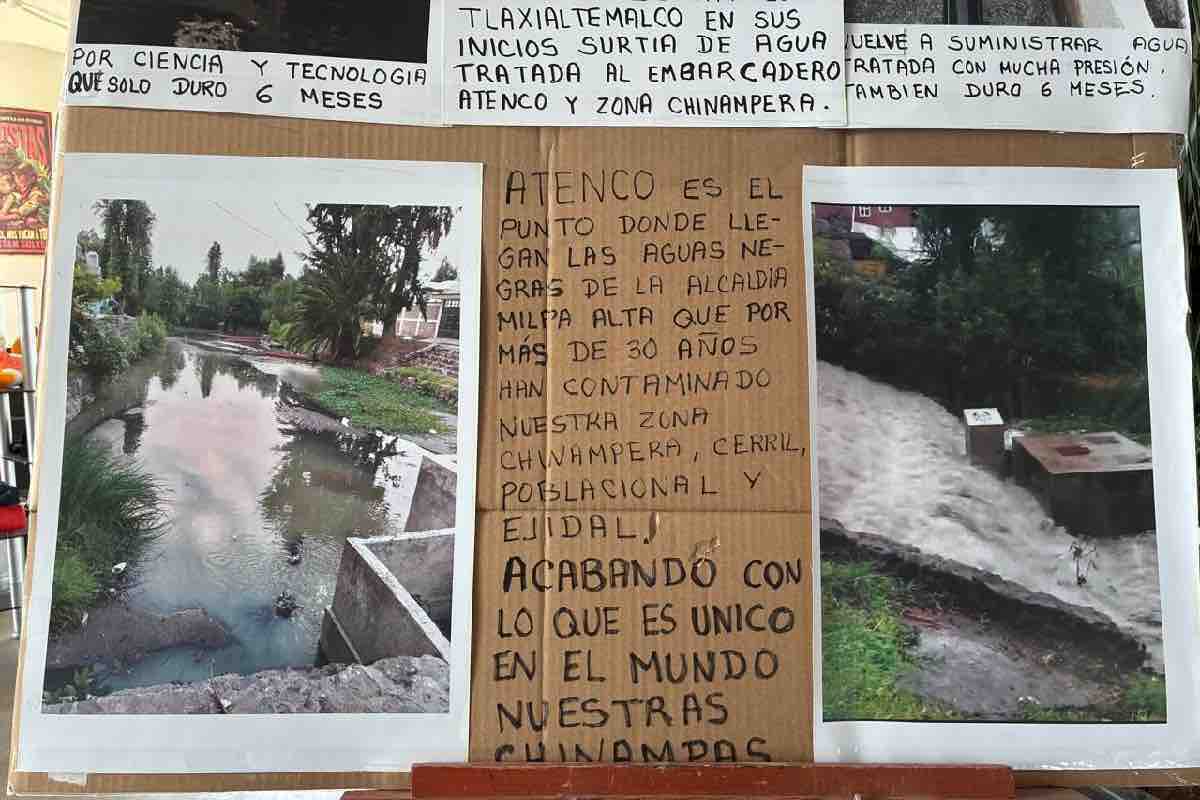 POR CIENCIA Y TECNOLOGIA
QUE SOLO DURO 6 MESES
TLAXIALTEMALCO EN SUS
INICIOS SURTIA DE AGUA
TRATADA AL EMBARCADERO
ATENCO Y ZONA CHINAMPERA.
VUELVE A SUMINISTRAR AGUA
TRATADA CON MUCHA PRESIÓN.
TAMBIEN DURO 6 MESES.
ATENCO ES EL
PUNTO DONDE LLE-
GAN LAS AGUAS NE-
GRAS DE LA ALCALDIA
MILPA ALTA QUE POR
MÁS DE 30 AÑOS
HAN CONTAMINADO
NUESTRA ZONA
CHINAMPERA, CERRIL,
POBLACIONAL Y
EJIDAL.
ACABANDO CON
LO QUE ES UNICO
EN EL MUNDO
NUESTRAS
CHINAMPAS